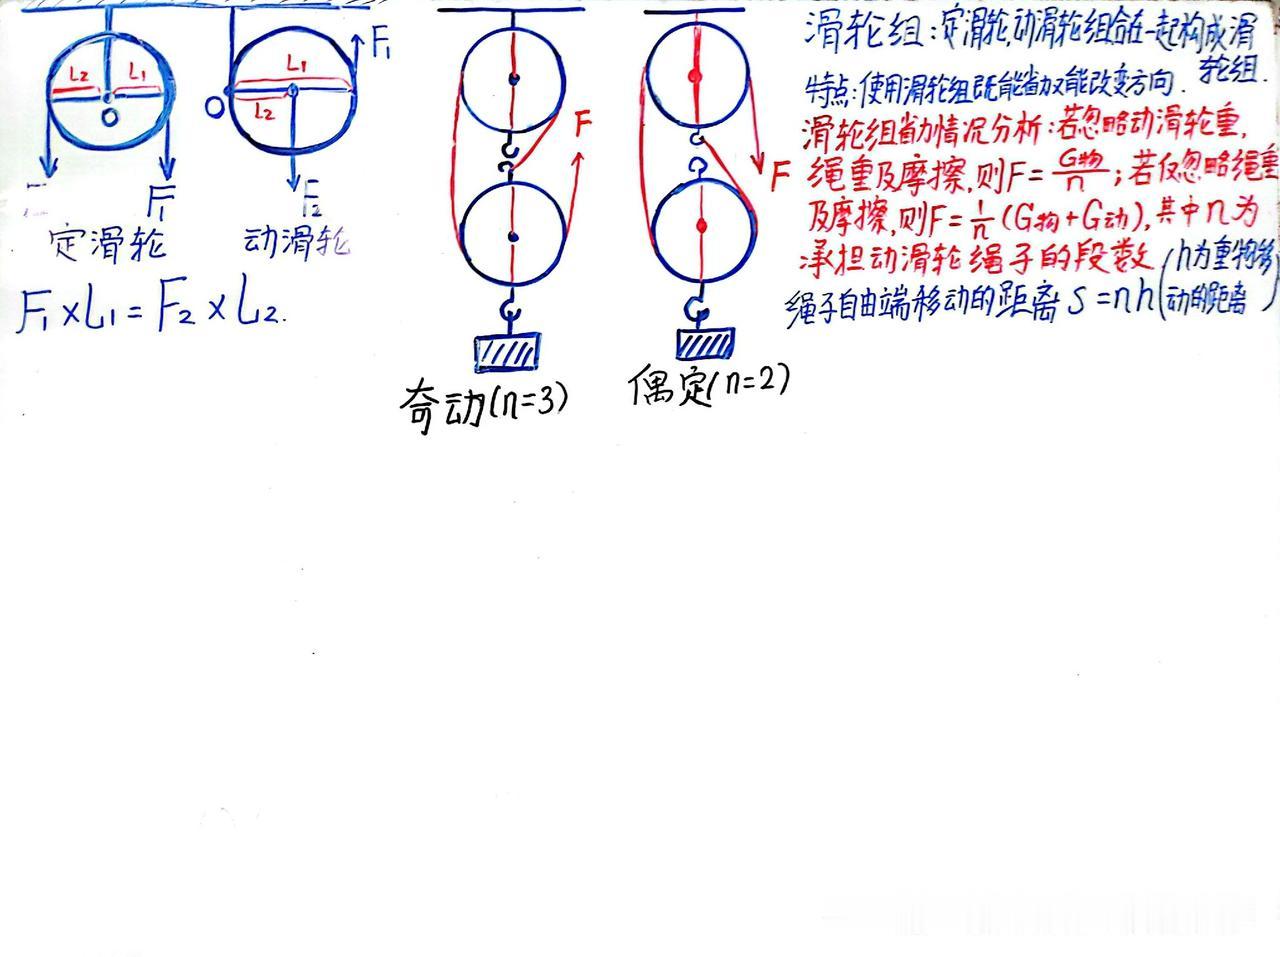 L2
L1
O
F1
定滑轮
F1
L1
O
L2
F2
动滑轮
F1×L1=F2×L2.
F
奇动(n=3)
F
偶定(n=2)
滑轮组:定滑轮,动滑轮组合在一起构成滑
轮组.
特点:使用滑轮组既能省力又能改变方向.
滑轮组省力情况分析:若忽略动滑轮重,
绳重及摩擦,则F=G物/n;若仅忽略绳重
及摩擦,则F=1/n(G物+G动),其中n为
承担动滑轮绳子的段数
绳子自由端移动的距离S=nh(h为重物移
动的距离)